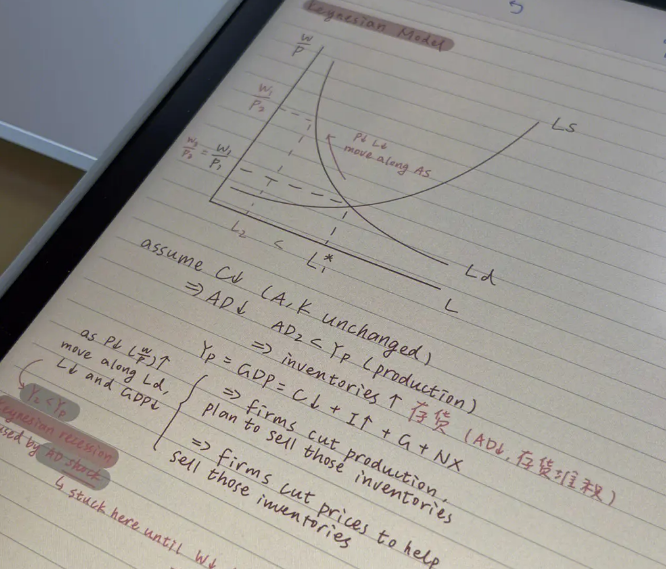 Keynesian Model
W/P
W₁/P₂
W₂/P₂ = W₁/P₁
P↓ L↓
move along AS
Ls
Ld
L₂ < L₁*
L
assume C↓ (A, K unchanged)
⇒ AD↓ AD₂ < Yp (production)
⇒ inventories ↑ 存货 (AD↓, 存货堆积)
Yp = GDP = C↓ + I↑ + G + NX
⇒ firms cut production,
plan to sell those inventories
⇒ firms cut prices to help
sell those inventories
as P↓ (W/P)↑
move along Ld,
L↓ and GDP↓
Y₂ < Yp
Keynesian recession
used by AD shock
↳ stuck here until W↓